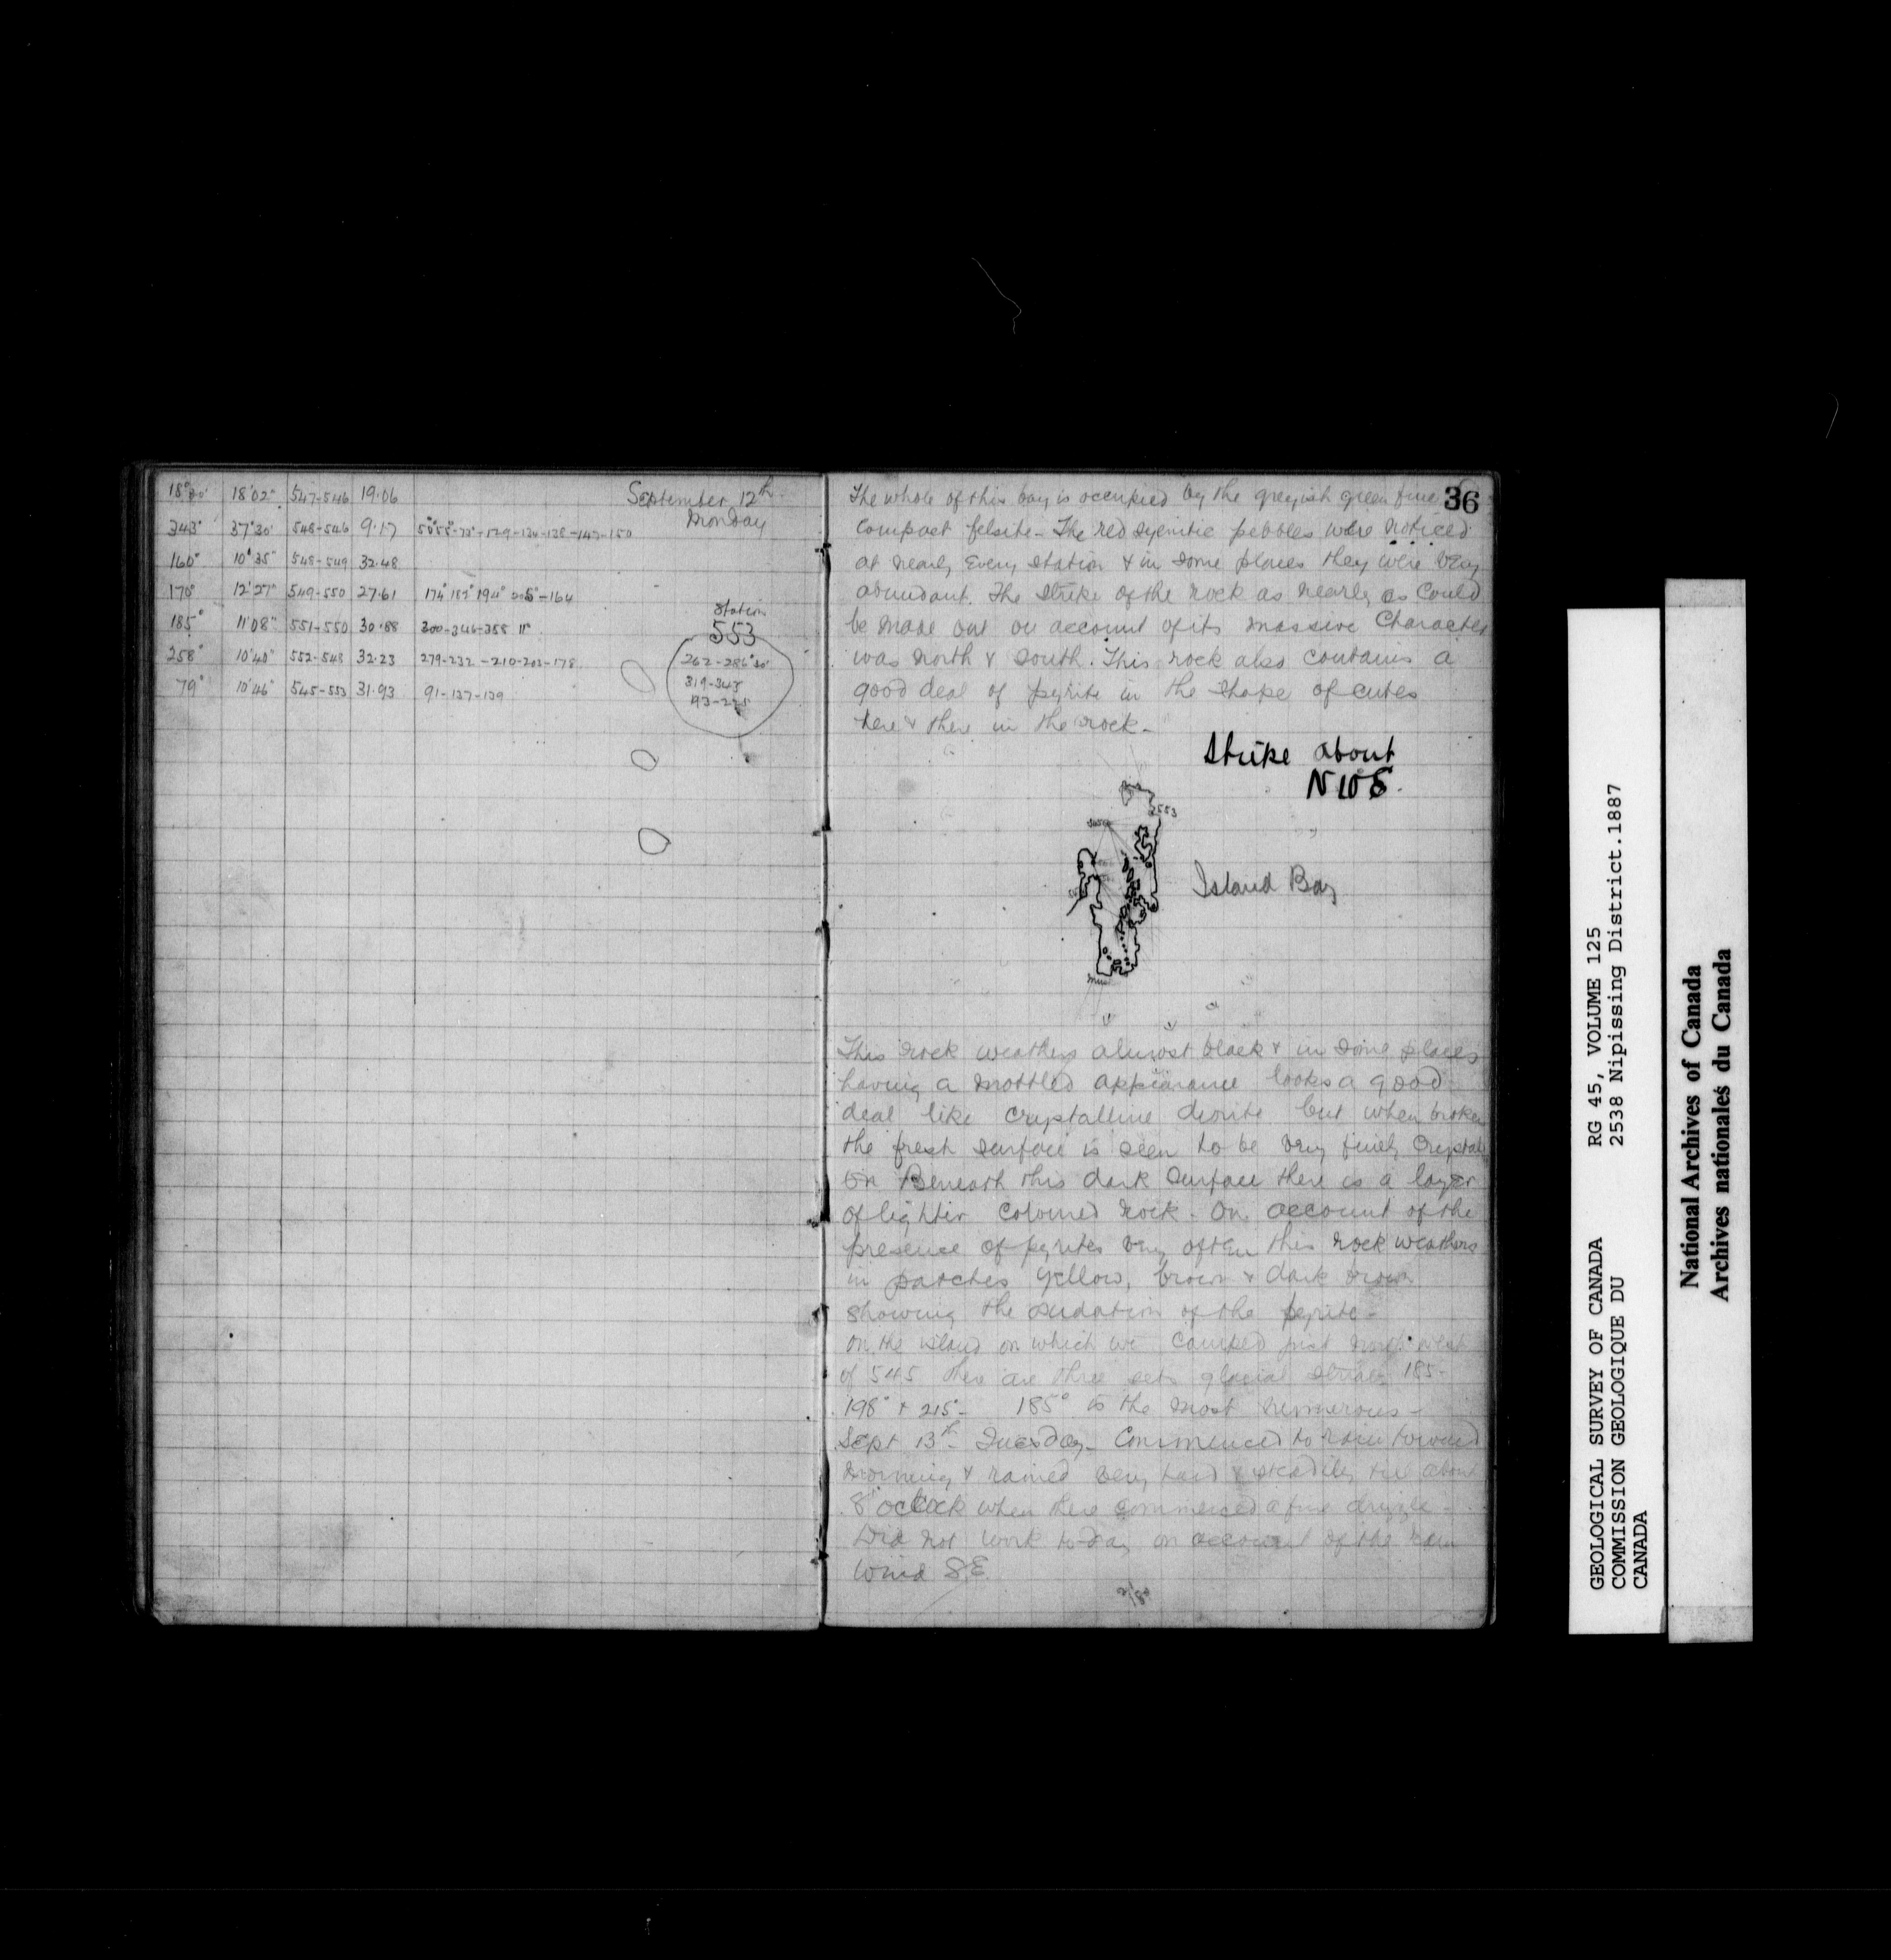 September 12th
Monday
18°30' 18'02" 547-546 19.06
343° 37'30" 548-546 9.17
160° 10'35" 548-549 32.48
170° 12'27" 549-550 27.61 174° 182° 194° -164
185° 11'08" 551-550 30.88 300-346-358 11°
258° 10'40" 552-548 32.23 279-232-210-202-178
79° 10'46" 545-553 31.93 91-137-139
Station
553
262-286°30'
319-343
36
The whole of this bay is occupied by the greyish green fine
compact felsite - The red syenitic pebbles were noticed
at nearly every station & in some places they were very
abundant. The strike of the rock as nearly as could
be made out on account of its massive character
was north & south. This rock also contains a
good deal of pyrite in the shape of cubes
here & there in the rock -
Strike about
N10E.
553
Island Bay
This rock weathers almost black & in some places
having a mottled appearance looks a good
deal like crystalline diorite but when broken
the fresh surface is seen to be very finely crystal
Beneath this dark surface there is a layer
of lighter coloured rock - On account of the
presence of pyrites very often this rock weathers
in patches yellow, brown & dark brown
showing the oxidation of the pyrite -
On the island on which we camped just north west
of 545 there are three sets glacial striae 185-
198° & 215° - 185° is the most numerous -
Sept 13th - Tuesday - Commenced to rain toward
morning & rained very hard & steadily till about
8 o'clock when there commenced a fine drizzle -
Did not work to-day on account of the rain
Wind S.E.
GEOLOGICAL SURVEY OF CANADA RG 45, VOLUME 125
COMMISSION GEOLOGIQUE DU 2538 Nipissing District.1887
CANADA
National Archives of Canada
Archives nationales du Canada